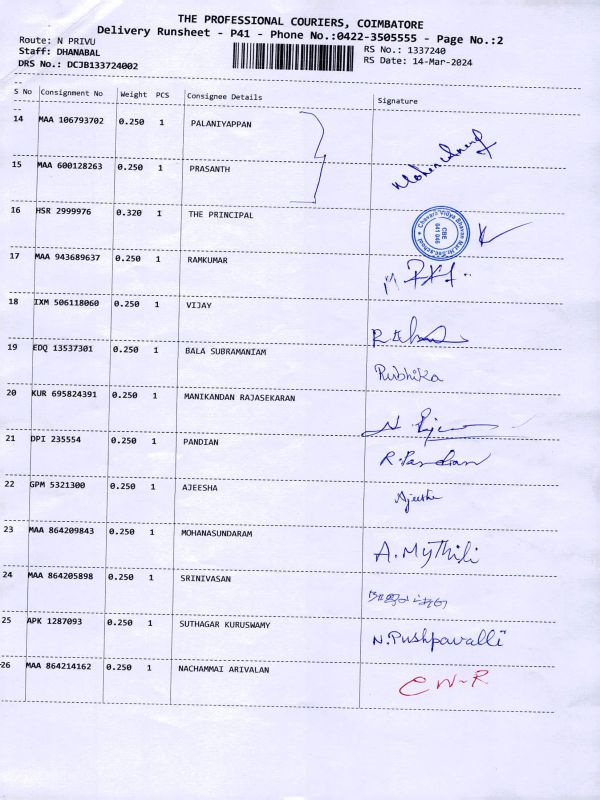 THE PROFESSIONAL COURIERS, COIMBATORE
Delivery Runsheet - P41 - Phone No.:0422-3505555 - Page No.:2
Route: N PRIVU RS No.: 1337240
Staff: DHANABAL RS Date: 14-Mar-2024
DRS No.: DCJB133724002
S No Consignment No Weight PCS Consignee Details Signature
14 MAA 106793702 0.250 1 PALANIYAPPAN
15 MAA 600128263 0.250 1 PRASANTH
16 HSR 2999976 0.320 1 THE PRINCIPAL
CBE
641 046
17 MAA 943689637 0.250 1 RAMKUMAR
18 IXM 506118060 0.250 1 VIJAY
19 EDQ 13537301 0.250 1 BALA SUBRAMANIAM Rubhika
20 KUR 695824391 0.250 1 MANIKANDAN RAJASEKARAN
21 DPI 235554 0.250 1 PANDIAN R.Pandian
22 GPM 5321300 0.250 1 AJEESHA Ajeesha
23 MAA 864209843 0.250 1 MOHANASUNDARAM A.Mythili
24 MAA 864205898 0.250 1 SRINIVASAN
25 APK 1287093 0.250 1 SUTHAGAR KURUSWAMY N.Pushpavalli
26 MAA 864214162 0.250 1 NACHAMMAI ARIVALAN